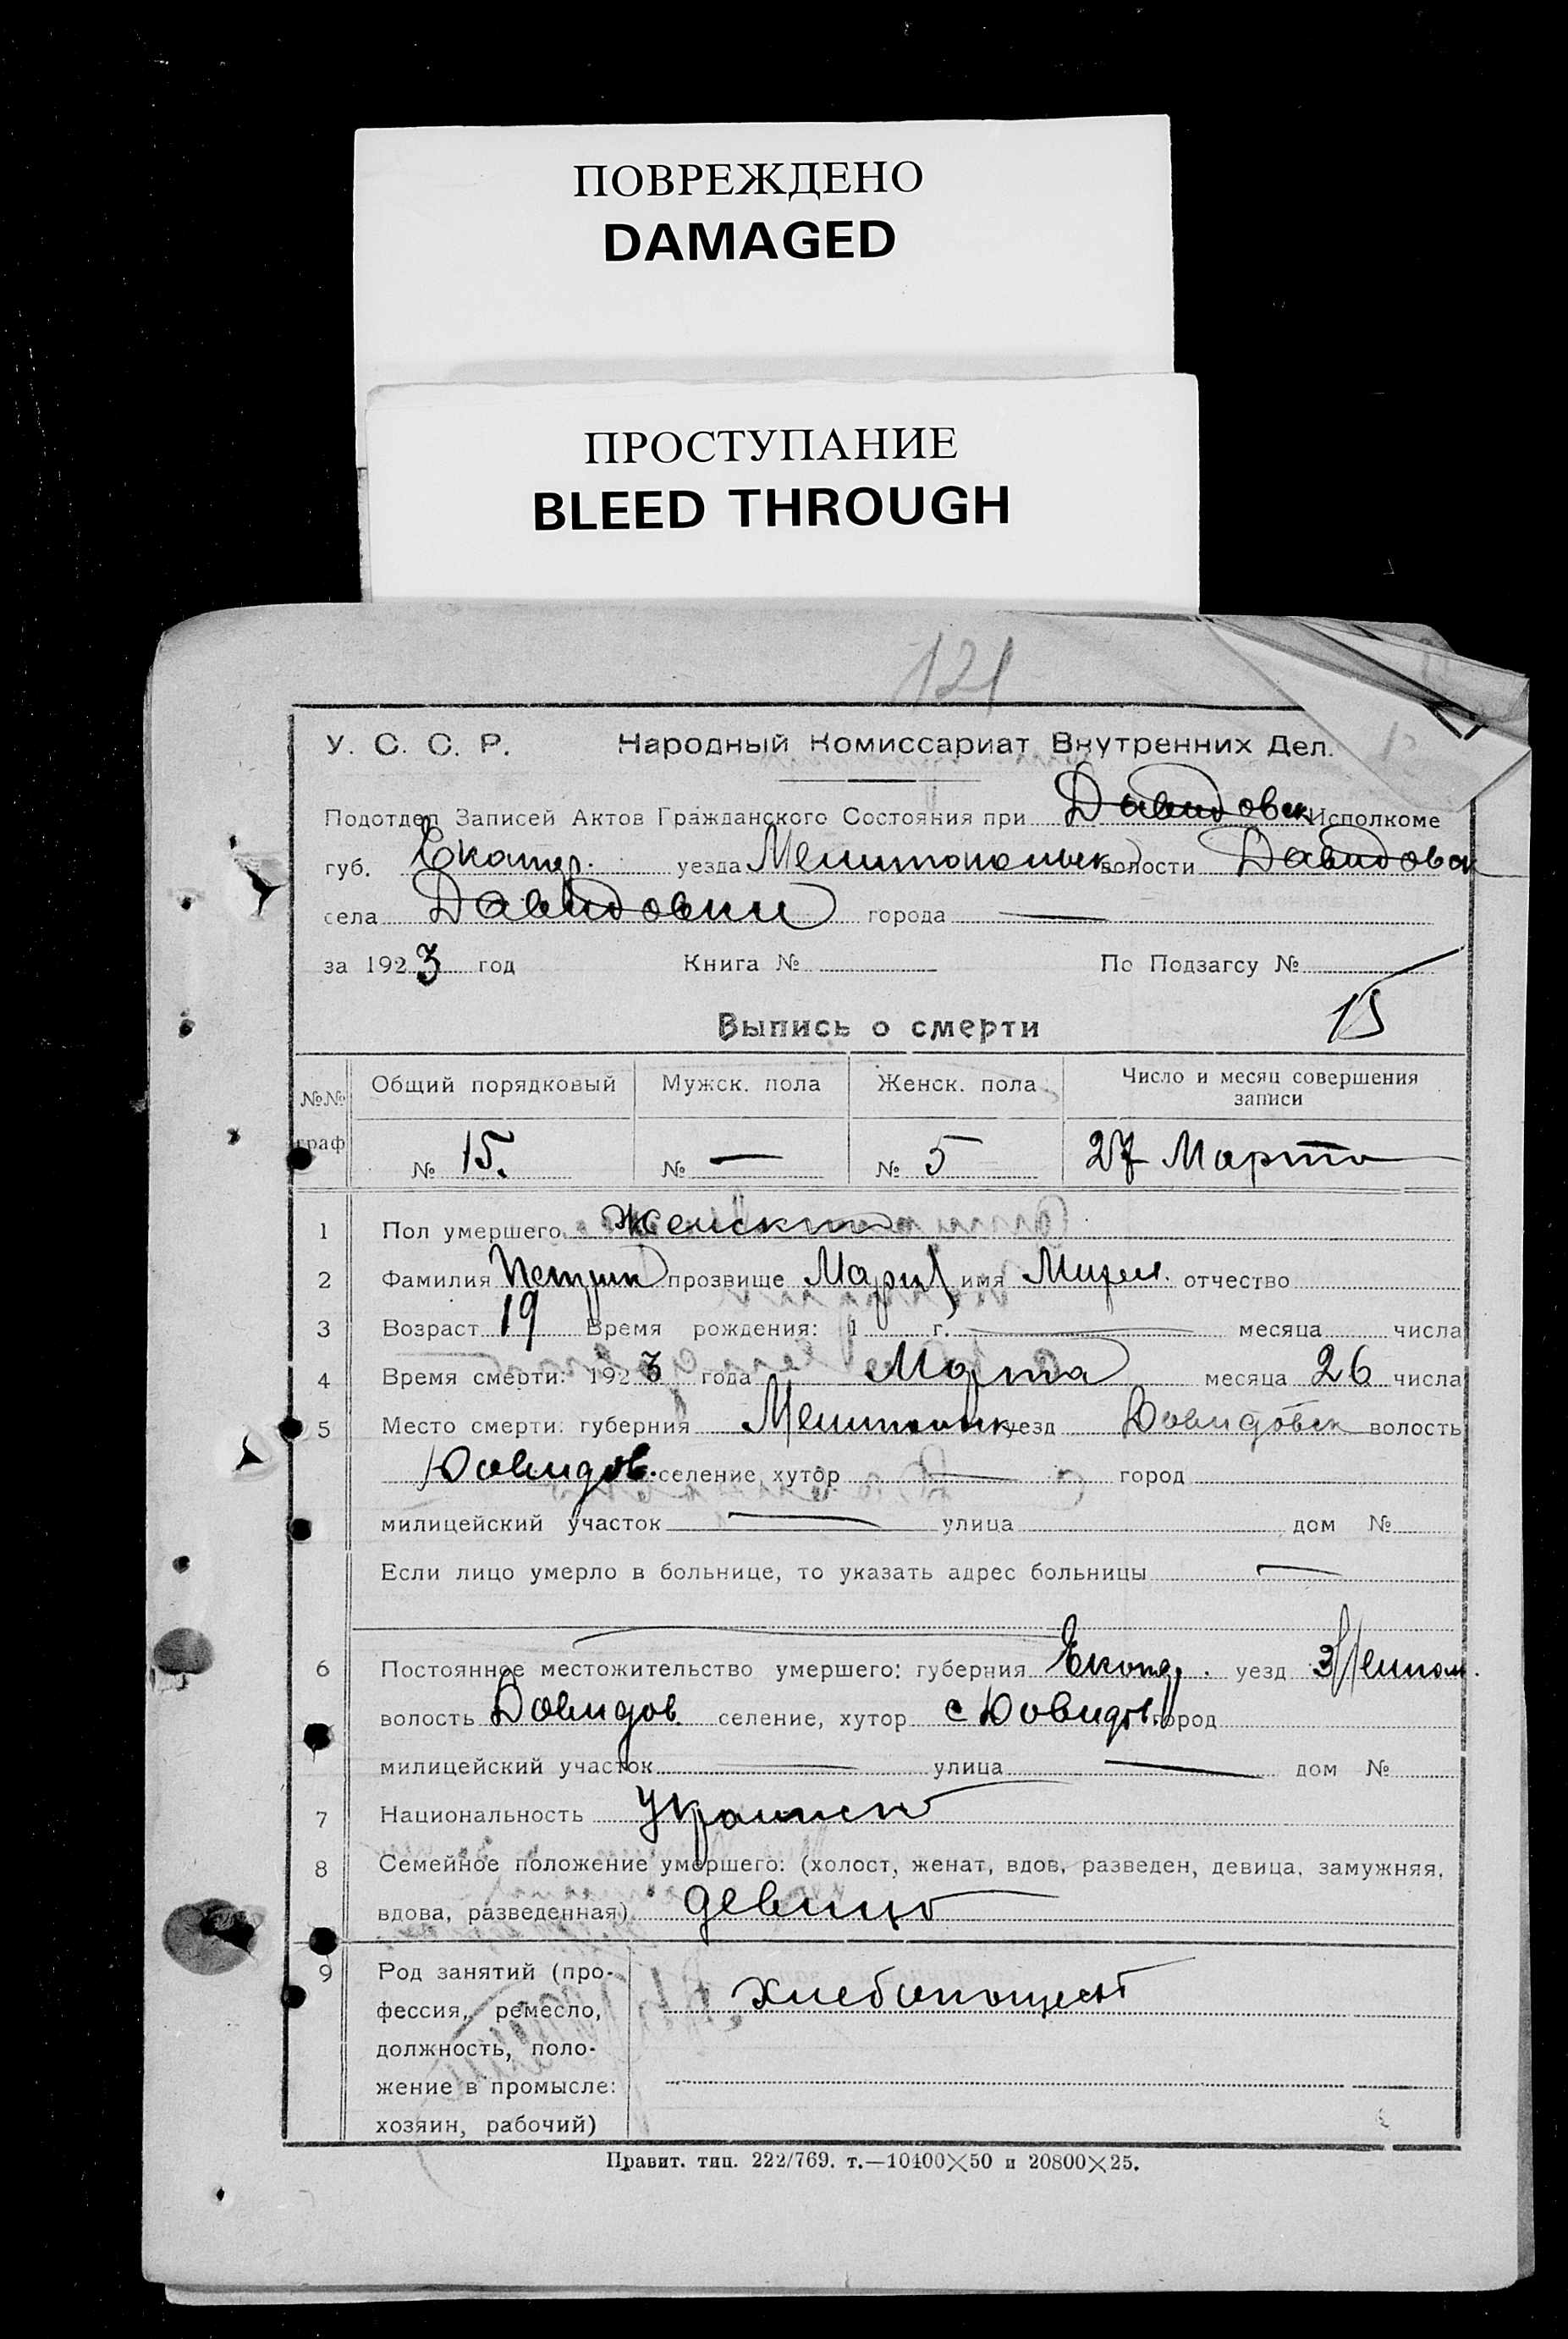 ПОВРЕЖДЕНО
DAMAGED
ПРОСТУПАНИЕ
BLEED THROUGH
121
У. С. С. Р. Народный Комиссариат Внутренних Дел.
Подотдел Записей Актов Гражданского Состояния при Давидовск Исполкоме
губ. Екатер. уезда Мелитопольск волости Давидовск
села Давидовки города —
за 1923 год Книга № По Подзагсу №
15
Выпись о смерти
№№ граф Общий порядковый Мужск. пола Женск. пола Число и месяц совершения записи
№ 15. № — № 5 27 Марта
1 Пол умершего Женский
2 Фамилия прозвище имя отчество
3 Возраст 19 Время рождения: 1 г. — месяца числа
4 Время смерти: 1923 года Марта месяца 26 числа
5 Место смерти: губерния уезд Давидовск волость
Давидов. селение, хутор — город
милицейский участок — улица дом №
Если лицо умерло в больнице, то указать адрес больницы —
6 Постоянное местожительство умершего: губерния Екатер. уезд
волость Давидов. селение, хутор с Давидов. город
милицейский участок — улица — дом №
7 Национальность
8 Семейное положение умершего: (холост, женат, вдов, разведен, девица, замужняя,
вдова, разведенная) девица
9 Род занятий (про-
фессия, ремесло,
должность, поло-
жение в промысле:
хозяин, рабочий)
Правит. тип. 222/769. т.—10400×50 и 20800×25.